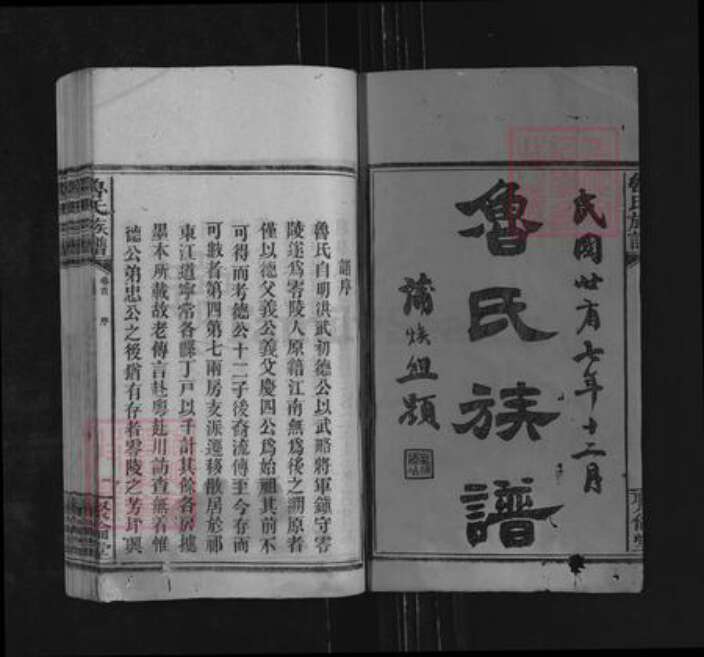 民國卅有七年十二月
魯氏族譜
蒲煥組題
魯氏族譜
譜序
魯氏自明洪武初德公以武略將軍鎮守零
陵遂為零陵人原籍江南無為後之溯原者
僅以德父義公義父慶四公為始祖其前不
可得而考德公十二子後裔流傳至今存而
可數者第四第七兩房支派遷移散居於祁
東江道寧常各縣丁戶以千計其餘各房據
墨本所載故老傳言赴粵赴川訪查無着惟
德公弟忠公之後猶有存者零陵之芳圩與
魯氏族譜
卷首 序
一